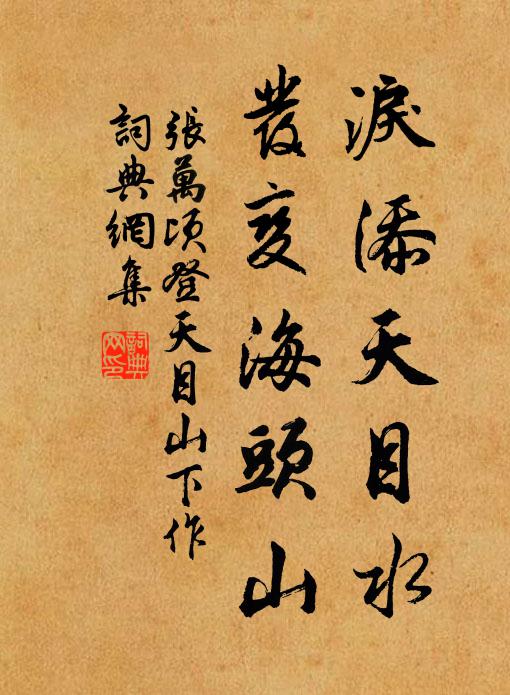 淚添天目水
發变海頭山
張萬頃登天目山下作
詞典網集
詞典網印